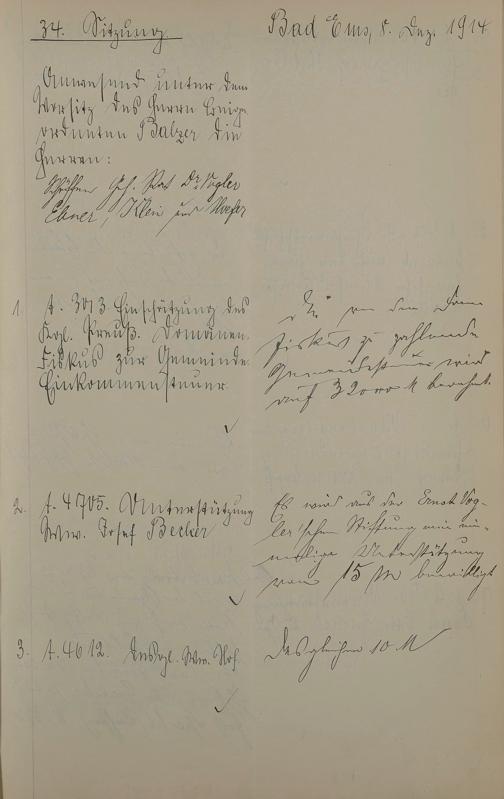 34. Sitzung
Bad Ems, 8. Dez. 1914
Anwesend unter dem
Vorsitz des Herrn Beige-
ordneten Balzer die
Herren:
Schöffen Geh. Rat Dr. Vogler
Ebner, Klein und
1. t. 3013. Einschätzung des
Kgl. Preuß. Domänen
Fiskus zur Gemeinde
Einkommensteuer.
Die von dem Dom.
Fiskus zu zahlende
Gemeindesteuer wird
auf 32000 M berechnet.
2. t. 4705. Unterstützung
Wwe. Josef Becker
Es wird aus der Ernst Vog-
ler'schen Stiftung eine ein-
malige Unterstützung
von 15 M bewilligt
3. t. 4612. Desgl. Wwe.
Desgleichen 10 M